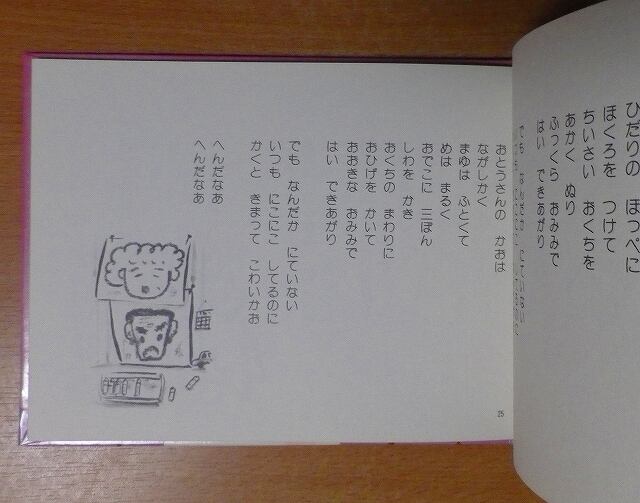 ひだりの ほっぺに
ほくろを つけて
ちいさい おくちを
あかく ぬり
ふっくら おみみで
はい できあがり
でも なんだか にていない
おとうさんの かおは
ながしかく
まゆは ふとくて
めは まるく
おでこに 三ぼん
しわを かき
おくちの まわりに
おひげを かいて
おおきな おみみで
はい できあがり
でも なんだか にていない
いつも にこにこ してるのに
かくと きまって こわいかお
へんだなあ
へんだなあ
25